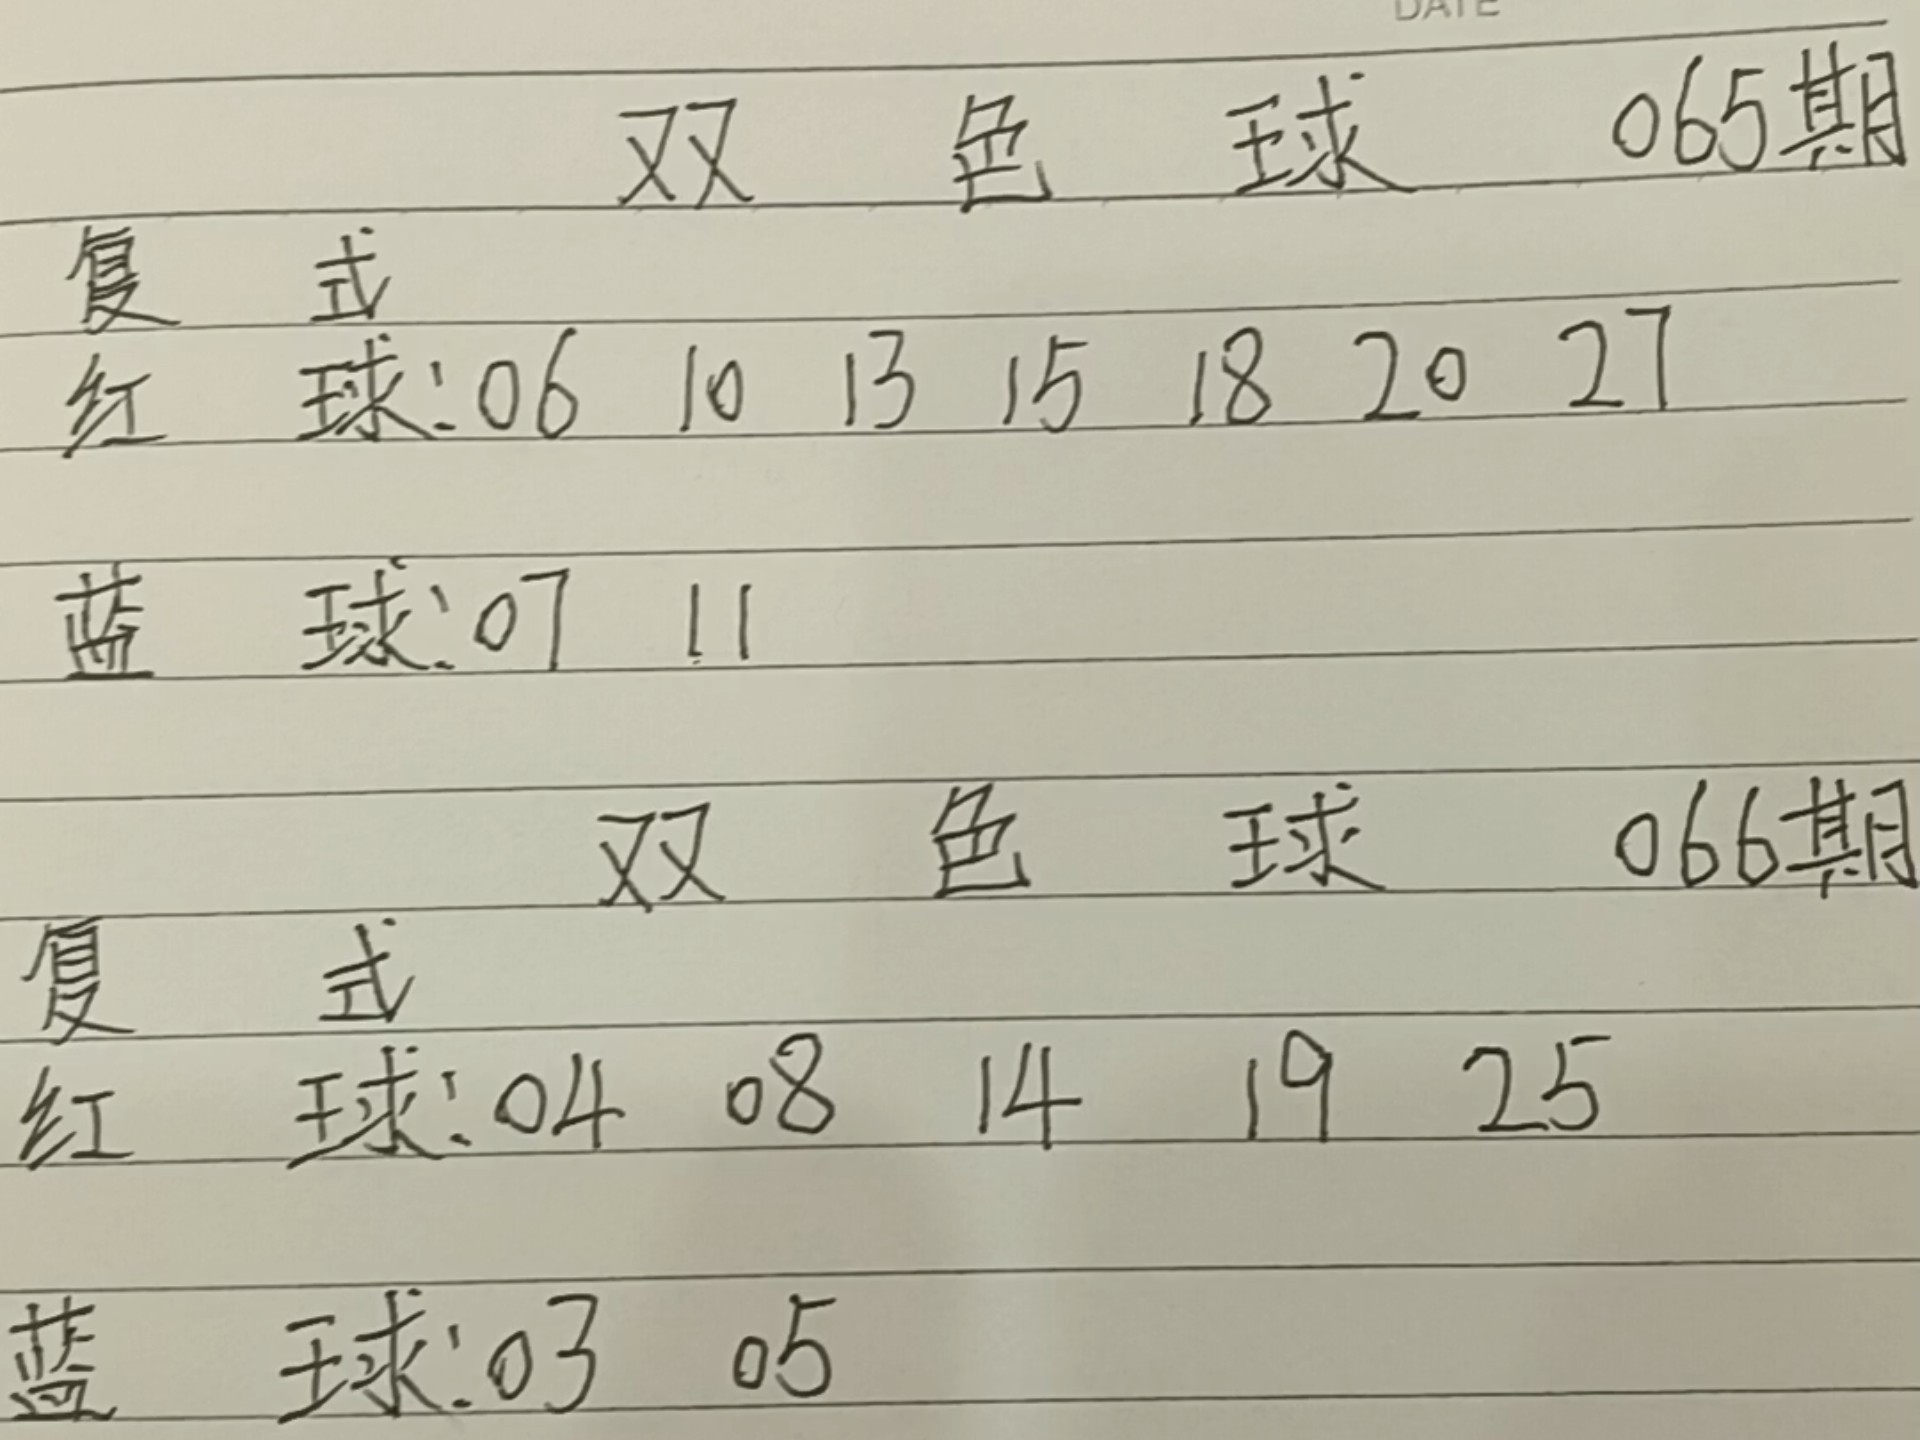 DATE
双 色 球 065期
复 式
红 球:06 10 13 15 18 20 27
蓝 球:07 11
双 色 球 066期
复 式
红 球:04 08 14 19 25
蓝 球:03 05